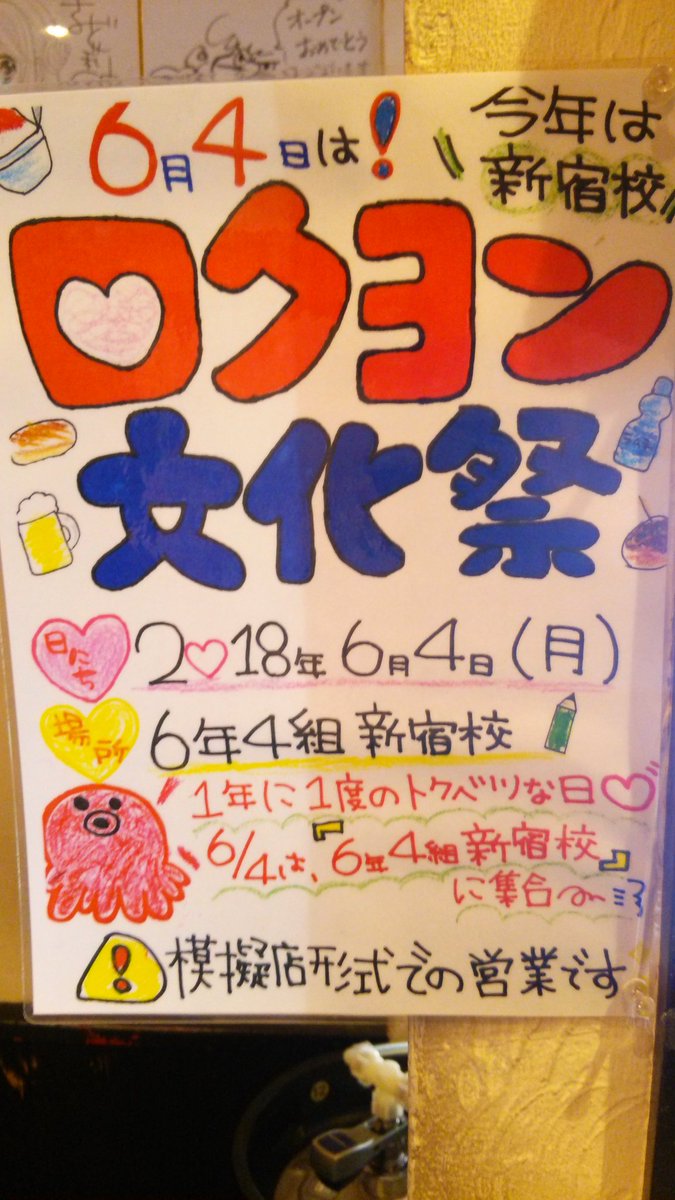 オープン
おめでとう
6月4日は!
今年は
新宿校
ロクヨン
文化祭
日にち
2018年6月4日(月)
場所
6年4組 新宿校
1年に1度のトクベツな日
6/4は、『6年4組 新宿校』
に集合〜
!
模擬店形式での営業です